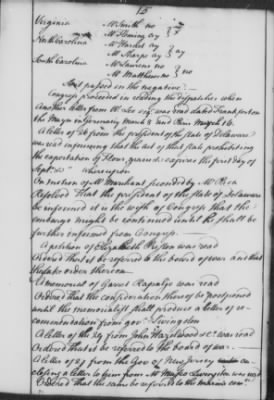 15
Virginia Mr Smith no
Mr Fleming ay
North Carolina Mr Burke ay
Mr Sharpe ay } ay
South Carolina Mr Laurens no
Mr Matthews no } no
So it passed in the negative.
Congress proceeded in reading the dispatches when
Another letter from Mr was read dated Frankfort on
the Mayn in Germany March & Paris
A letter of 26 from the president of the state of Delaware
was read informing that the act of that state prohibiting
the exportation of flour grain &c expires the first day of
Sept whereupon
On motion of Mr seconded by Mr
Resolved That the president of the state of Delaware
be informed it is the wish of Congress that the
embargo might be continued until he shall be
further informed from Congress.
A petition of Elizabeth was read
Ordered that it be referred to the board of war and that
they take order thereon
A memorial of Garret Rapalje was read
Ordered that the consideration thereof be postponed
until the memorialist shall produce a letter of re-
commendation from gov Livingston
A letter of the 29 from John Hazelwood &c was read
Ordered that it be referred to the board of war.
A letter of 27 from the Gov of New Jersey en-
closing a letter to him from Mr Livingston was read
Ordered that the same be referred to the marine com